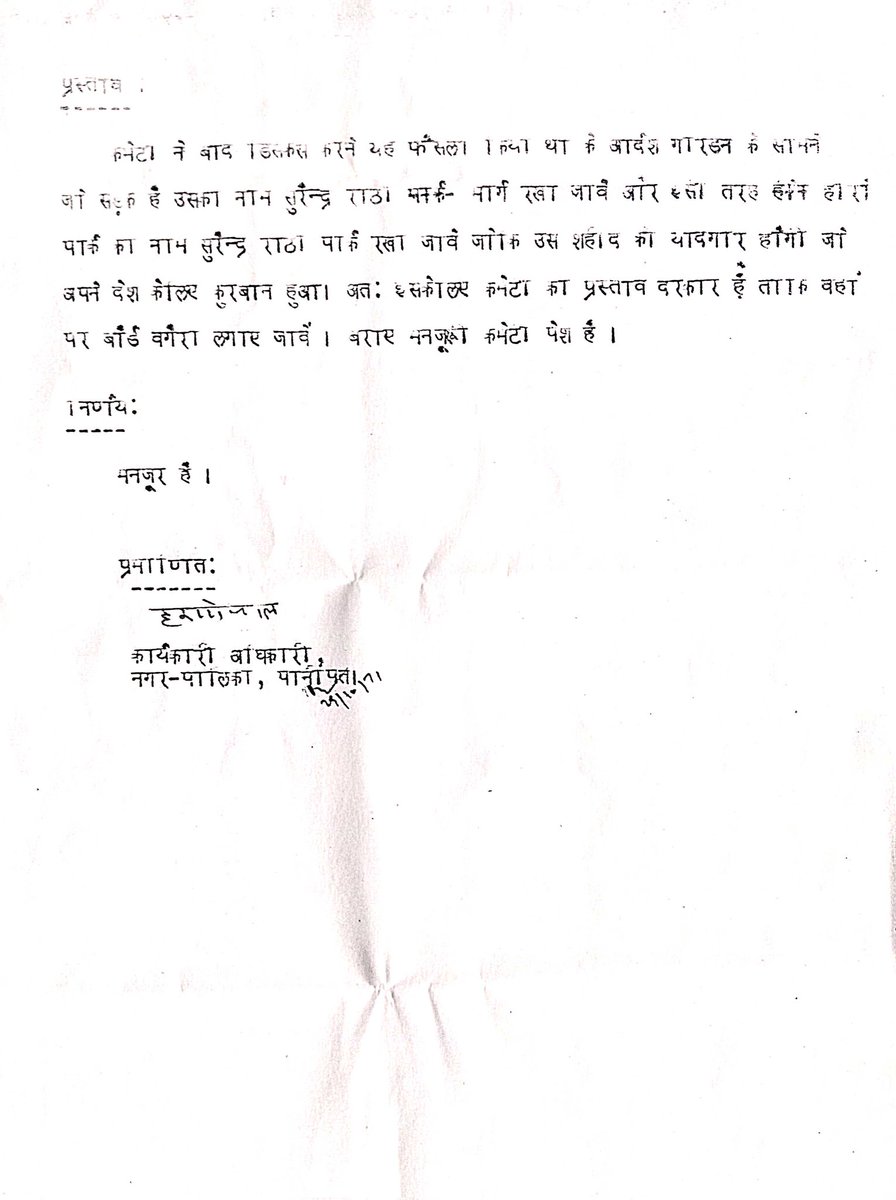 प्रस्ताव :
कमेटी ने बाद डिसकस करने यह फैसला किया था के आर्दश गारडन के सामने
जो सड़क है उसका नाम सुरेन्द्र राठी मार्ग रखा जावे और इसी तरह हाली
पार्क का नाम सुरेन्द्र राठी पार्क रखा जावे जोकि उस शहीद की यादगार होगी जो
अपने देश केलिए कुरबान हुआ। अत: इसकेलिए कमेटी का प्रस्ताव दरकार है ताकि वहां
पर बोर्ड वगैरा लगाए जावें । बराए मनजूरी कमेटी पेश है ।
निर्णय:
मनजूर है ।
प्रमाणित:
कार्यकारी अधिकारी,
नगर-पालिका, पानीपत।